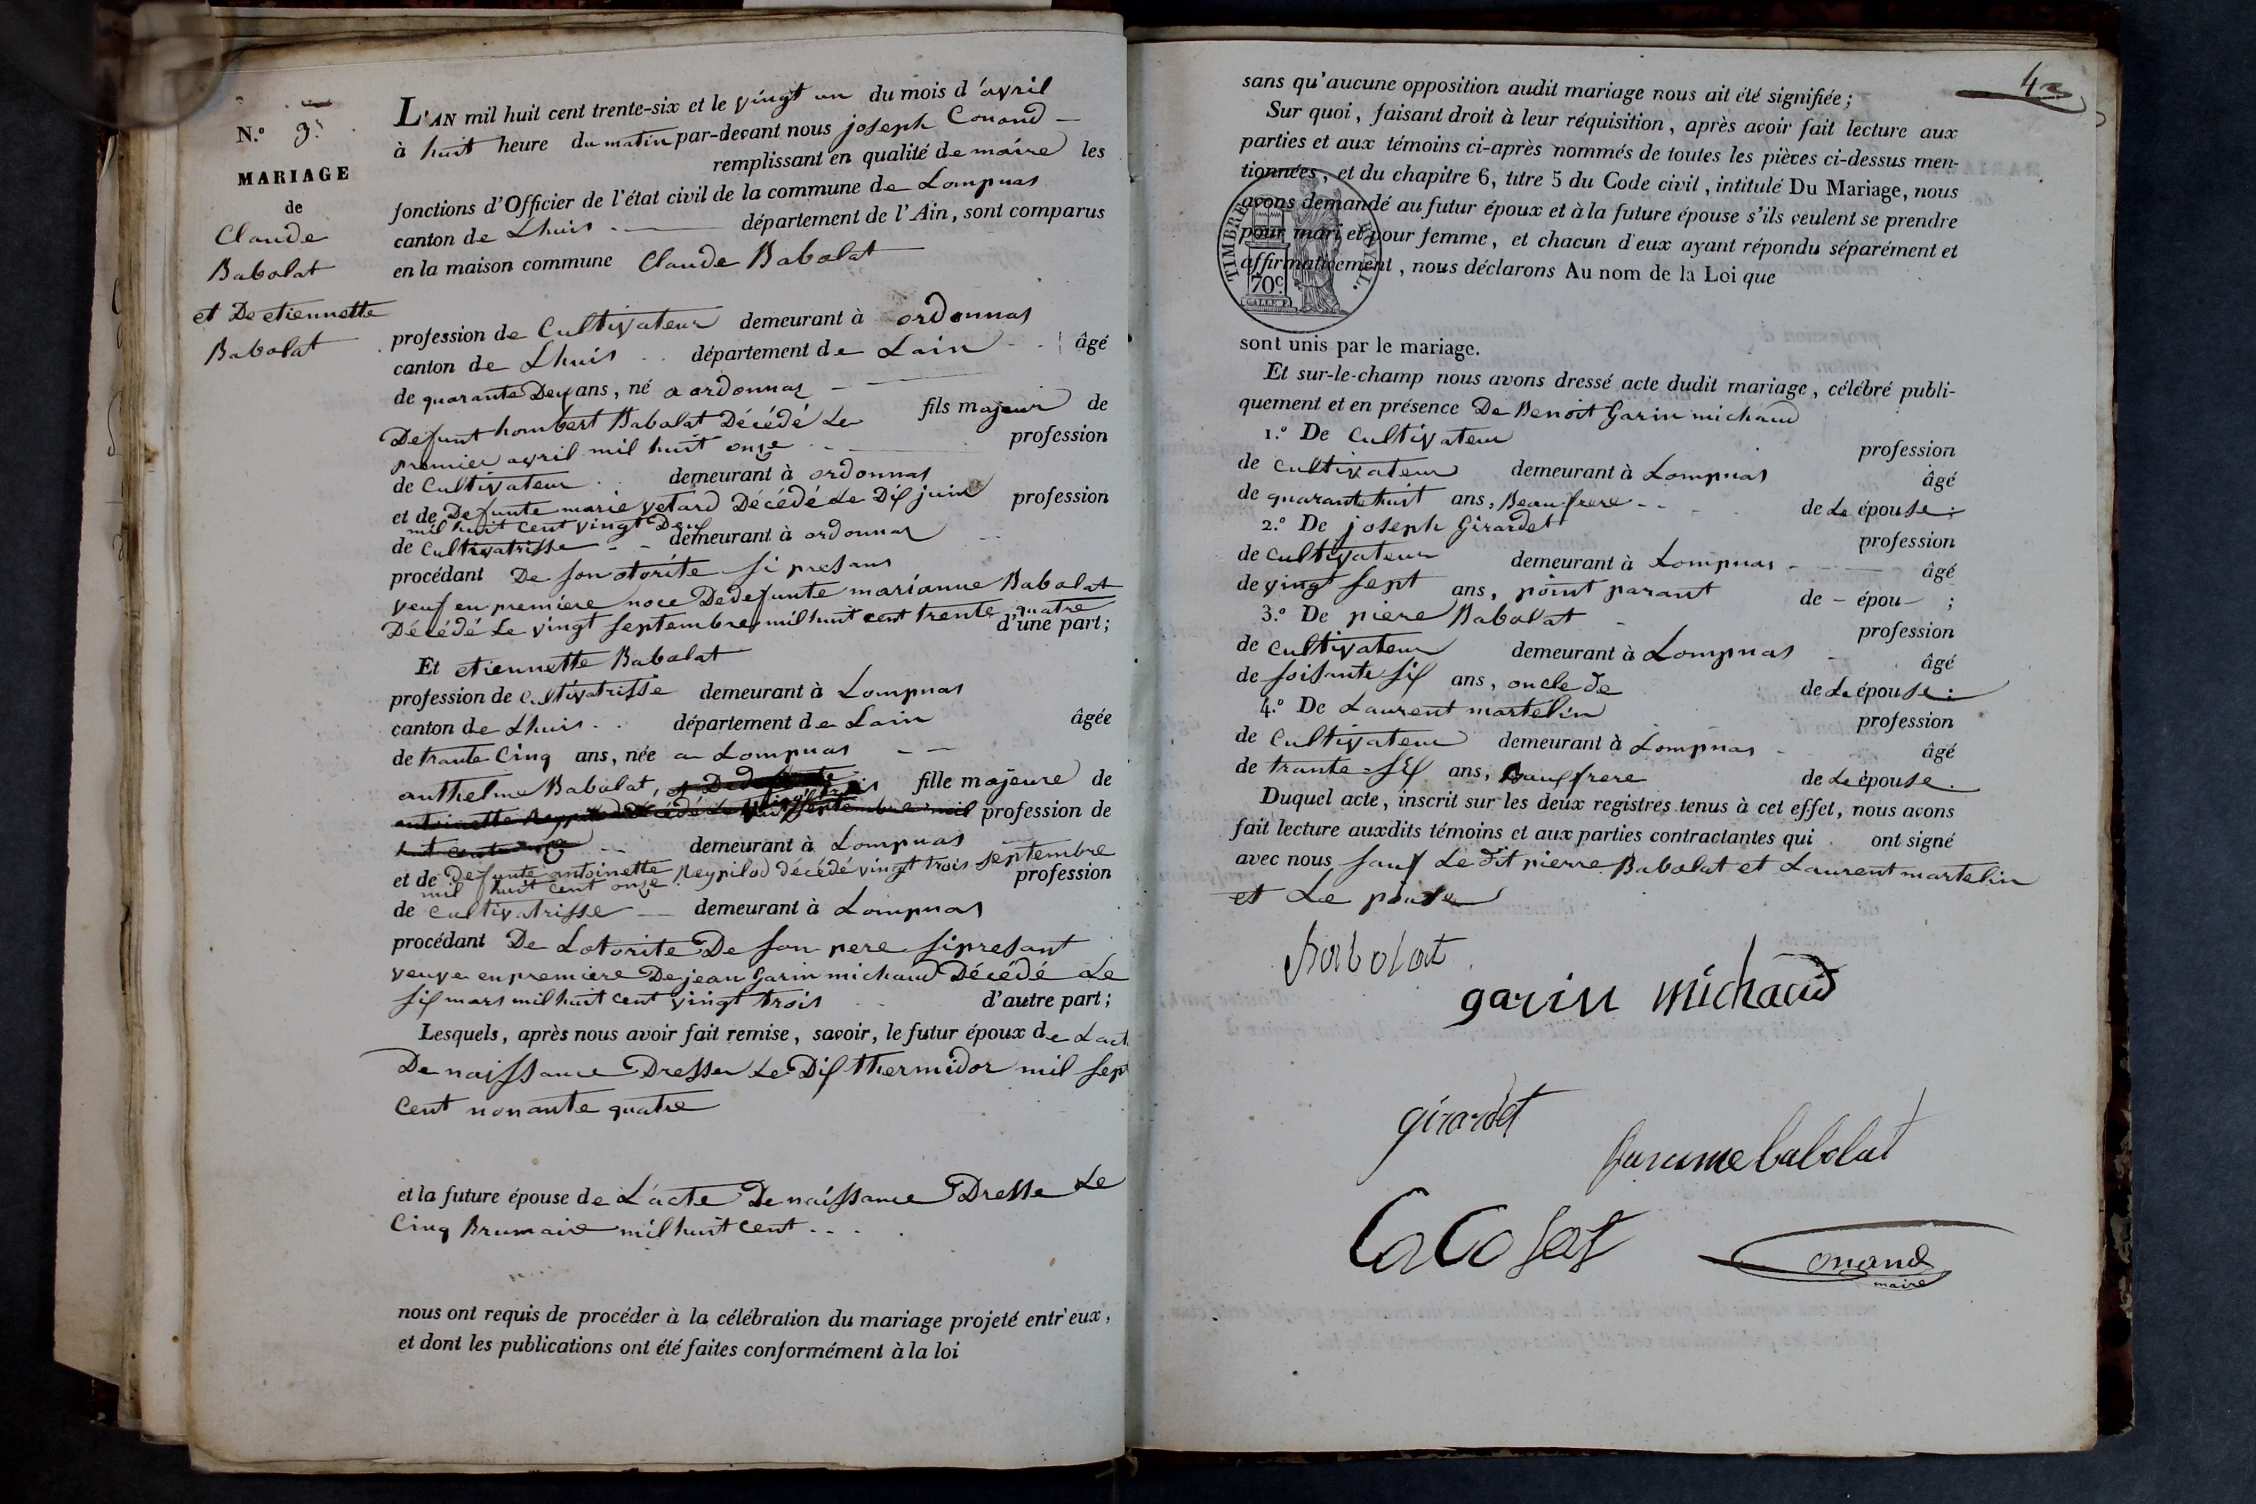 N.º 3.
MARIAGE
de
Claude
Babolat
et De etiennette
Babolat
L'AN mil huit cent trente-six et le vingt un du mois d'avril
à huit heure du matin par-devant nous joseph Conand
remplissant en qualité de maire les
fonctions d'Officier de l'état civil de la commune de Lompnas
canton de Lhuis département de l'Ain, sont comparus
en la maison commune Claude Babolat
profession de Cultivateur demeurant à ordonnas
canton de Lhuis département de Lain âgé
de quarante Deux ans, né a ordonnas
fils majeur de
Defunt hombert Babolat Décédé Le
premier avril mil huit onze profession
de Cultivateur demeurant à ordonnas
et de Defunte marie vetard Décédé Le Dix juin profession
mil huit cent vingt Deux
de Cultivatrisse demeurant à ordonnas
procédant De son otorité si presans
veuf en premiere noce De defunte marianne Babolat
Décédé Le vingt septembre mil huit cent trente quatre
d'une part;
Et etiennette Babolat
profession de Cultivatrisse demeurant à Lompnas
canton de Lhuis département de Lain âgée
de trante Cinq ans, née a Lompnas
anthelme Babolat, fille majeure de
profession de
demeurant à Lompnas
et de Defunte antoinette Reypilod décédé vingt trois septembre
mil huit cent onze profession
de Cultivatrisse demeurant à Lompnas
procédant De Lotorite De son pere si presant
veuve en premiere De jean Garin michaud Décédé Le
six mars mil huit cent vingt trois d'autre part;
Lesquels, après nous avoir fait remise, savoir, le futur époux de Lact
De naissance Dresser Le Dix thermidor mil sept
cent nonante quatre
et la future épouse de L'acte De naissance Dresse Le
Cinq Brumaire mil huit cent
nous ont requis de procéder à la célébration du mariage projeté entr'eux,
et dont les publications ont été faites conformément à la loi
sans qu'aucune opposition audit mariage nous ait été signifiée;
Sur quoi, faisant droit à leur réquisition, après avoir fait lecture aux
parties et aux témoins ci-après nommés de toutes les pièces ci-dessus men-
tionnées, et du chapitre 6, titre 5 du Code civil, intitulé Du Mariage, nous
avons demandé au futur époux et à la future épouse s'ils veulent se prendre
pour mari et pour femme, et chacun d'eux ayant répondu séparément et
affirmativement, nous déclarons Au nom de la Loi que
TIMBRE ROYAL.
70c.
sont unis par le mariage.
Et sur-le-champ nous avons dressé acte dudit mariage, célébré publi-
quement et en présence De Benoit Garin michaud
1.º De Cultivateur profession
de Cultivateur demeurant à Lompnas âgé
de quarante huit ans, Beaufrere de Le épouse;
2.º De joseph Girardet profession
de Cultivateur demeurant à Lompnas âgé
de vingt sept ans, point parant de - épou- ;
3.º De piere Babolat profession
de Cultivateur demeurant à Lompnas âgé
de soisante six ans, oncle de de Le épouse;
4.º De Laurent martelin profession
de Cultivateur demeurant à Lompnas âgé
de trante six ans, Baufrere de Le épouse.
Duquel acte, inscrit sur les deux registres tenus à cet effet, nous avons
fait lecture auxdits témoins et aux parties contractantes qui ont signé
avec nous sauf Le dit pierre Babolat et Laurent martelin
et Le pouse
Babolat
garin michaud
girardet
babolat
Conand
maire